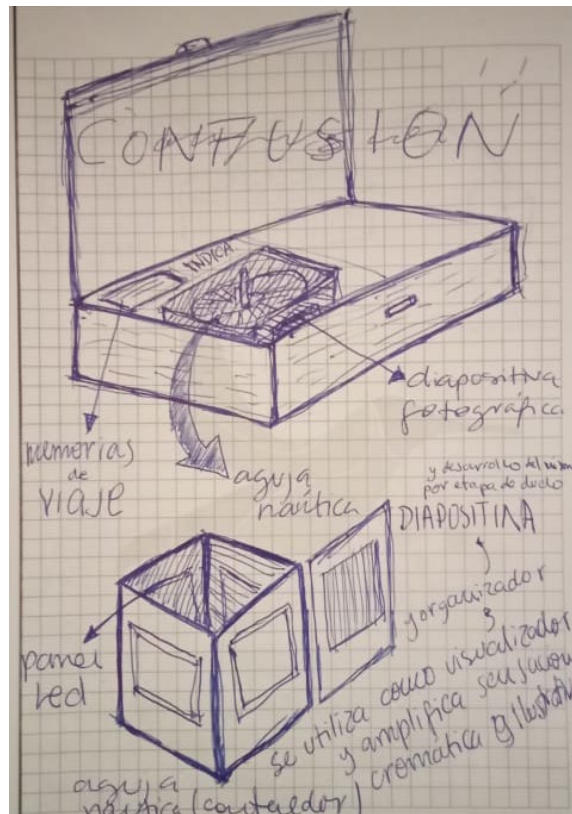 CONFUSIÓN
INDICA
diapositiva
fotográfica
memorias
de
VIAJE
aguja
naútica
y desarrollo del
por etapa de duelo
DIAPOSITINA
y organizador
panel
led
se utiliza como visualizador
y amplifica
cromática
aguja
naútica (contenedor)